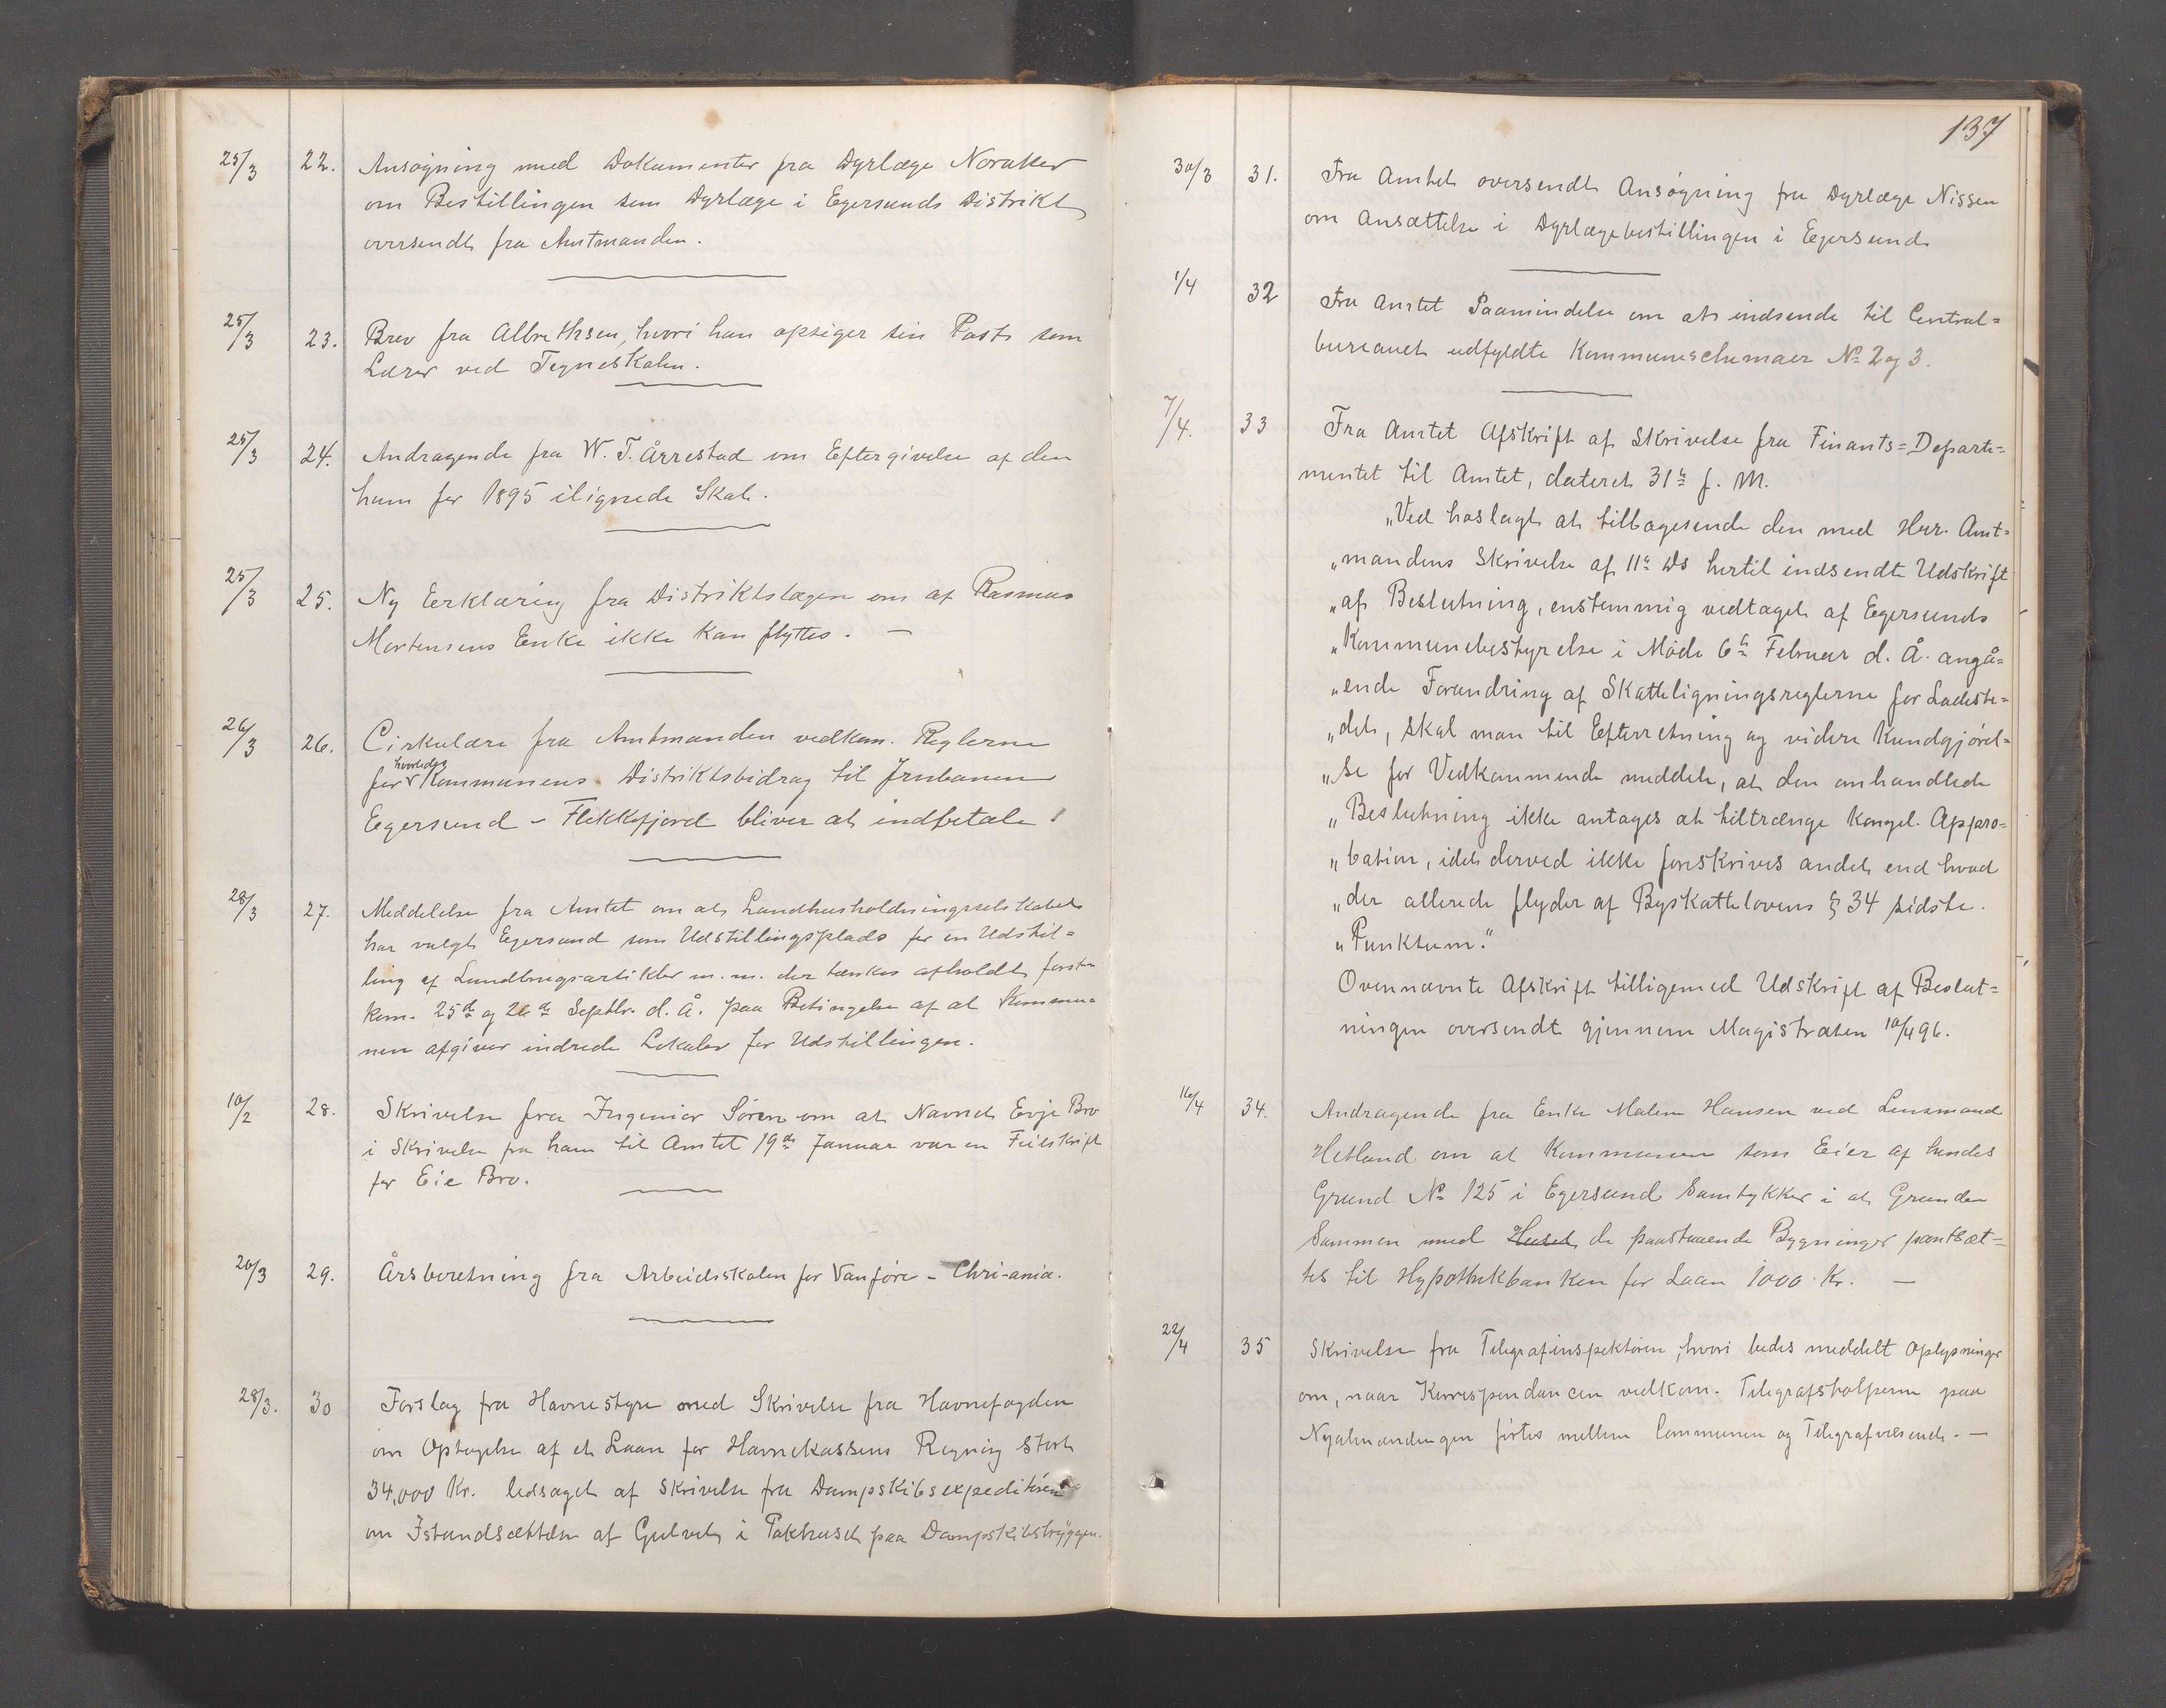 25/3 22. Ansøgning med Dokumenter fra Dyrlæge Noraker
om Bestillingen som Dyrlæge i Egersunds Distrikt
oversendt fra Amtmanden.
25/3 23. Brev fra Albrethsen, hvori han opsiger sin Post som
Lærer ved Tegneskolen.
25/3 24. Andragende fra W. T. Årrestad om Eftergivelse af den
ham for 1895 ilignede Skat.
25/3 25. Ny Eerklæring fra Distriktslægen om at Rasmus
Mortensens Enke ikke kan flyttes. —
26/3 26. Cirkulære fra Amtmanden vedkom. Reglerne
for hvorledes Kommunens Distriktsbidrag til Jrnbanen
Egersund - Flekkefjord bliver at indbetale!
28/3 27. Meddelelse fra Amtet om at Landhusholdningsselskabet
har valgt Egersund som Udstillingsplads for en Udstil=
ling af Landbrugsartikler m.m. der tænkes afholdt første
kom. 25de og 26de Septbr. d. Å. paa Betingelse af at Kommu=
nen afgiver indrede Lokaler for Udstillingen.
10/2 28. Skrivelse fra Ingeniør Sören om at Navnet Evje Bro
i Skrivelse fra ham til Amtet 19de Januar var en Feilskrift
for Eie Bro.
20/3 29. Årsberetning fra Arbeidsskolen for Vanføre - Chri-ania.
28/3. 30 Forslag fra Havnestyre med Skrivelse fra Havnefogden
om Optagelse af et Laan for Havnekassens Regning stort
34,000 Kr. ledsaget af Skrivelse fra Dampskibsexpeditören
om Istandsættelse af Gulvet i Pakhuset paa Dampskibsbryggen.
137
30/3 31. Fra Amtet oversendt Ansøgning fra Dyrlæge Nissen
om Ansættelse i Dyrlægebestillingen i Egersund
1/4 32 Fra Amtet Paamindelse om at indsende til Central=
bureauet udfyldte Kommuneschemaer No 2 og 3.
7/4. 33 Fra Amtet Afskrift af Skrivelse fra Finants=Departe=
mentet til Amtet, dateret 31te f. M.
„Ved hoslagt at tilbagesende den med Hrr. Amt=
„mandens Skrivelse af 11te Ds hertil indsendte Udskrift
„af Beslutning, enstemmig vedtaget af Egersunds
„Kommunebestyrelse i Møde 6te Februar d. Å. angå=
„ende Forandring af Skatteligningsreglerne for Ladeste=
„det, skal man til Efterretning og videre Kundgjørel=
„se for Vedkommende meddele, at den omhandlede
„Beslutning ikke antages at tiltrænge Kongel. Appro=
„bation, idet derved ikke foreskrives andet end hvad
„der allerede flyder af Byskattelovens § 34 sidste
„Punktum."
Ovennævnte Afskrift tilligemed Udskrift af Beslut=
ningen oversendt gjennem Magistraten 10/4 96.
16/4 34. Andragende fra Enke Malene Hansen ved Lensmand
Hetland om at Kommunen som Eier af hendes
Grund No 125 i Egersund Samtykker i at Grunden
Sammen med Huset de paastaaende Bygninger pantsæt=
tes til Hypothekbanken for Laan 1000 Kr. —
22/4 35 Skrivelse fra Telegrafinspektøren, hvori bedes meddelt Oplysninger
om, naar Korrespondancen vedkom. Telegrafstolperne paa
Nyalmendingen førtes mellem Communen og Telegrafvæsenet. —